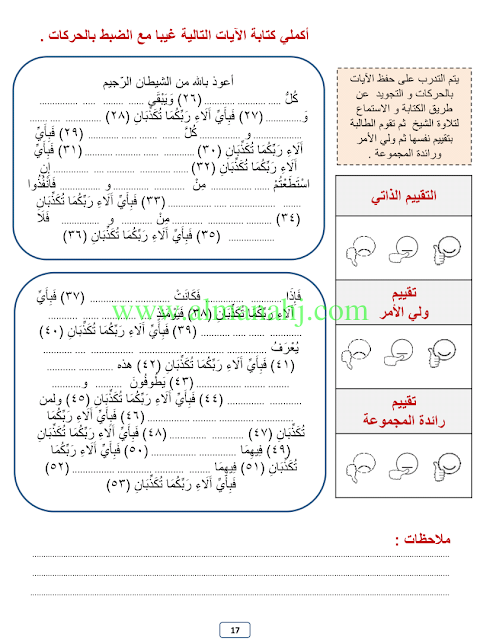 أكملي كتابة الآيات التالية غيبا مع الضبط بالحركات .
يتم التدرب على حفظ الآيات
بالحركات و التجويد عن
طريق الكتابة و الاستماع
لتلاوة الشيخ ثم تقوم الطالبة
بتقييم نفسها ثم ولي الأمر
ورائدة المجموعة .
أعوذ بالله من الشيطان الرّجيم
كُلُّ ............ (٢٦) وَيَبْقَى ............
وَ............ (٢٧) فَبِأَيِّ آلَاءِ رَبِّكُمَا تُكَذِّبَانِ (٢٨) ............
............ و ............ كُلَّ ............ (٢٩) فَبِأَيِّ
آلَاءِ رَبِّكُمَا تُكَذِّبَانِ (٣٠) ............ (٣١) فَبِأَيِّ
آلَاءِ رَبِّكُمَا تُكَذِّبَانِ (٣٢) ............ إِنِ
اسْتَطَعْتُمْ ............ مِنْ ............ و ............ فَانْفُذُوا
............ (٣٣) فَبِأَيِّ آلَاءِ رَبِّكُمَا تُكَذِّبَانِ
(٣٤) ............ مِنْ ............ و ............ فَلَا
............ (٣٥) فَبِأَيِّ آلَاءِ رَبِّكُمَا تُكَذِّبَانِ (٣٦)
التقييم الذاتي
تقييم
ولي الأمر
تقييم
رائدة المجموعة
فَإِذَا ............ فَكَانَتْ ............ (٣٧) فَبِأَيِّ
آلَاءِ رَبِّكُمَا تُكَذِّبَانِ (٣٨) فَيَوْمَئِذٍ ............
............ (٣٩) فَبِأَيِّ آلَاءِ رَبِّكُمَا تُكَذِّبَانِ (٤٠)
يُعْرَفُ ............
(٤١) فَبِأَيِّ آلَاءِ رَبِّكُمَا تُكَذِّبَانِ (٤٢) هذه ............
............ (٤٣) يَطُوفُونَ ............ و............
............ (٤٤) فَبِأَيِّ آلَاءِ رَبِّكُمَا تُكَذِّبَانِ (٤٥) ولمن
............ (٤٦) فَبِأَيِّ آلَاءِ رَبِّكُمَا
تُكَذِّبَانِ (٤٧) ............ (٤٨) فَبِأَيِّ آلَاءِ رَبِّكُمَا تُكَذِّبَانِ
(٤٩) فِيهِمَا ............ (٥٠) فَبِأَيِّ آلَاءِ رَبِّكُمَا
تُكَذِّبَانِ (٥١) فِيهِمَا ............ (٥٢)
فَبِأَيِّ آلَاءِ رَبِّكُمَا تُكَذِّبَانِ (٥٣)
www.almanahj.com
ملاحظات :
17